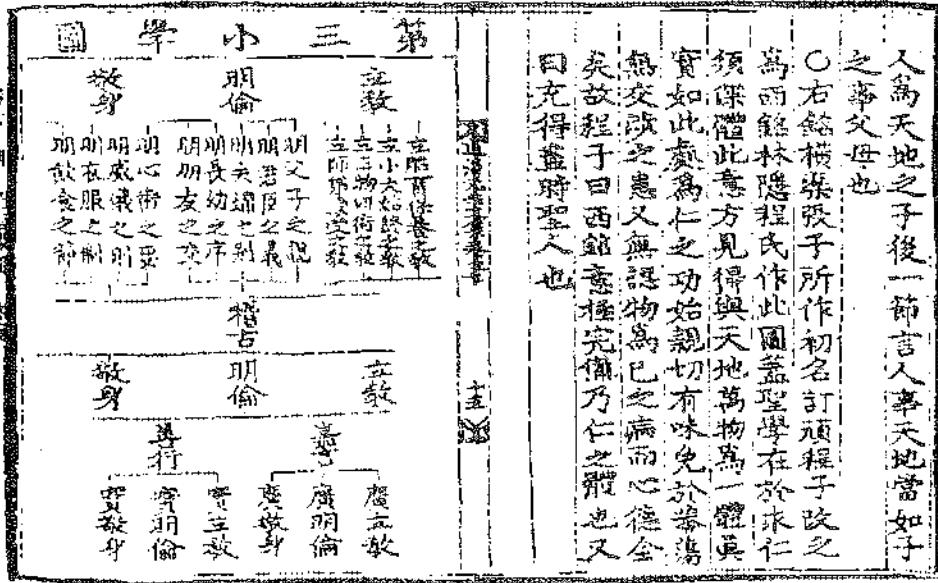 人爲天地之子後一節言人事天地當如子
之事父母也
○右銘橫渠張子所作初名訂頑程子改之
爲西銘林隱程氏作此圖蓋聖學在於求仁
須深體此意方見得與天地萬物爲一體眞
實如此處爲仁之功始親切有味免於莽蕩
無交涉之患又無認物爲己之病而心德全
矣故程子曰西銘意極完備乃仁之體也又
曰充得盡時聖人也
十五
第三小學圖
立敎
明倫
敬身
立胎育保養之敎
立小大始終之敎
立三物四術之敎
立師弟子受敎
明父子之親
明君臣之義
明夫婦之別
明長幼之序
明朋友之交
明心術之要
明威儀之則
明衣服之制
明飮食之節
稽古
立敎
明倫
敬身
嘉言
善行
廣立敎
廣明倫
廣敬身
實立敎
實明倫
實敬身